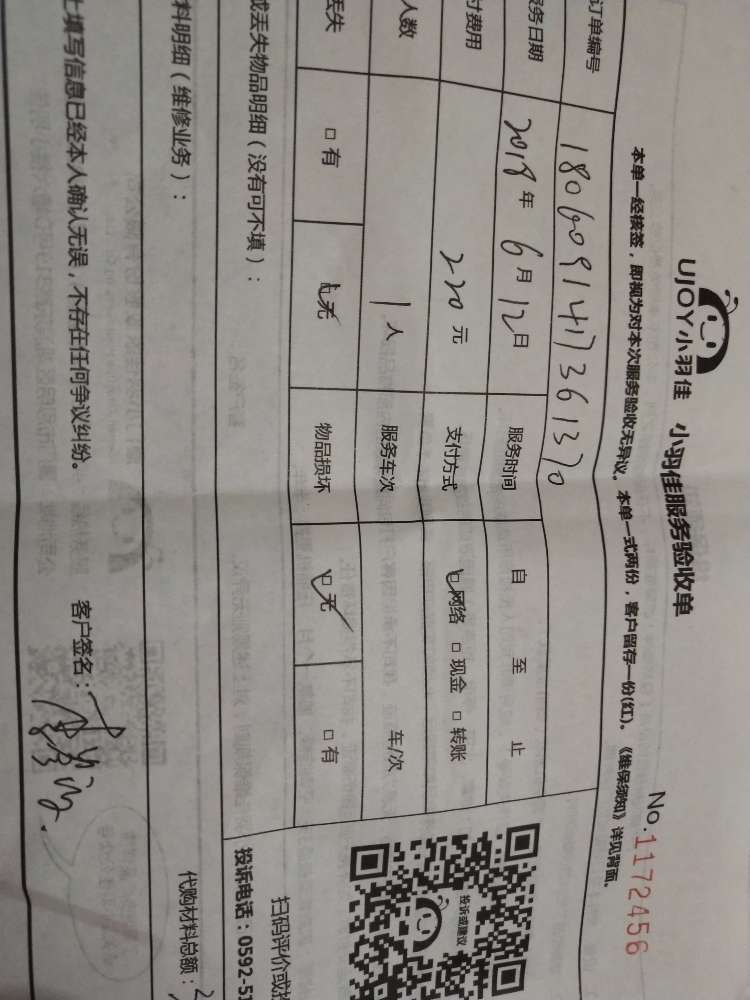 UJOY小羽佳 小羽佳服务验收单
No.1172456
本单一经核签，即视为对本次服务验收无异议。本单一式两份，客户留存一份(红)。《维保须知》详见背面。
订单编号 1806091417361370
服务日期 2018年6月12日 服务时间 自 至 止
付费用 220元 支付方式 ☑网络 □现金 □转账
人数 1人 服务车次 车/次
丢失 □有 ☑无 物品损坏 ☑无 □有
或丢失物品明细（没有可不填）：
投诉或建议
扫码评价或投
投诉电话：0592-51
料明细（维修业务）：
代购材料总额：
上填写信息已经本人确认无误，不存在任何争议纠纷。 客户签名：